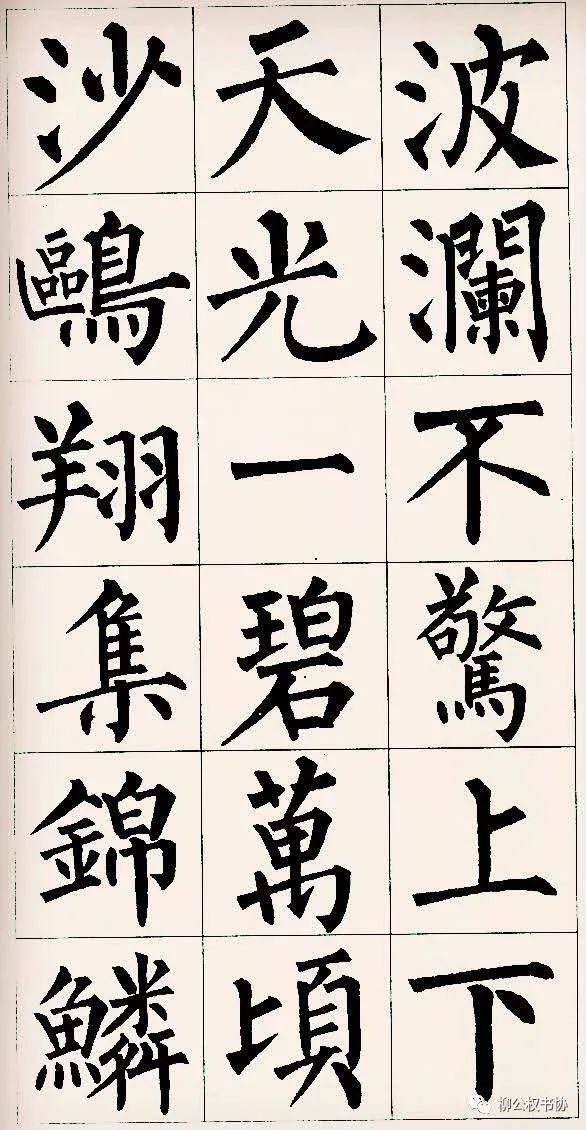 波瀾不驚上下
天光一碧萬頃
沙鷗翔集錦鱗
柳公权书协